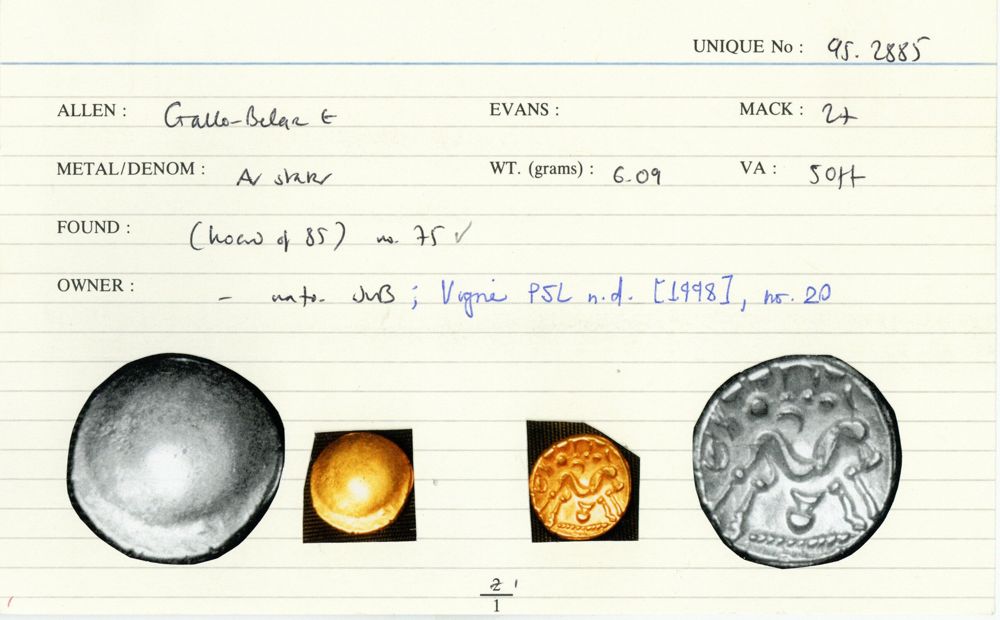 UNIQUE No : 95. 2885
ALLEN : Gallo-Belgic E EVANS : MACK : 27
METAL/DENOM : AV stater WT. (grams) : 6.09 VA : 50ff
FOUND : (hoard of 85) no. 75 ✓
OWNER : - ; Vignè PSL n.d. [1998], no. 20
2
1